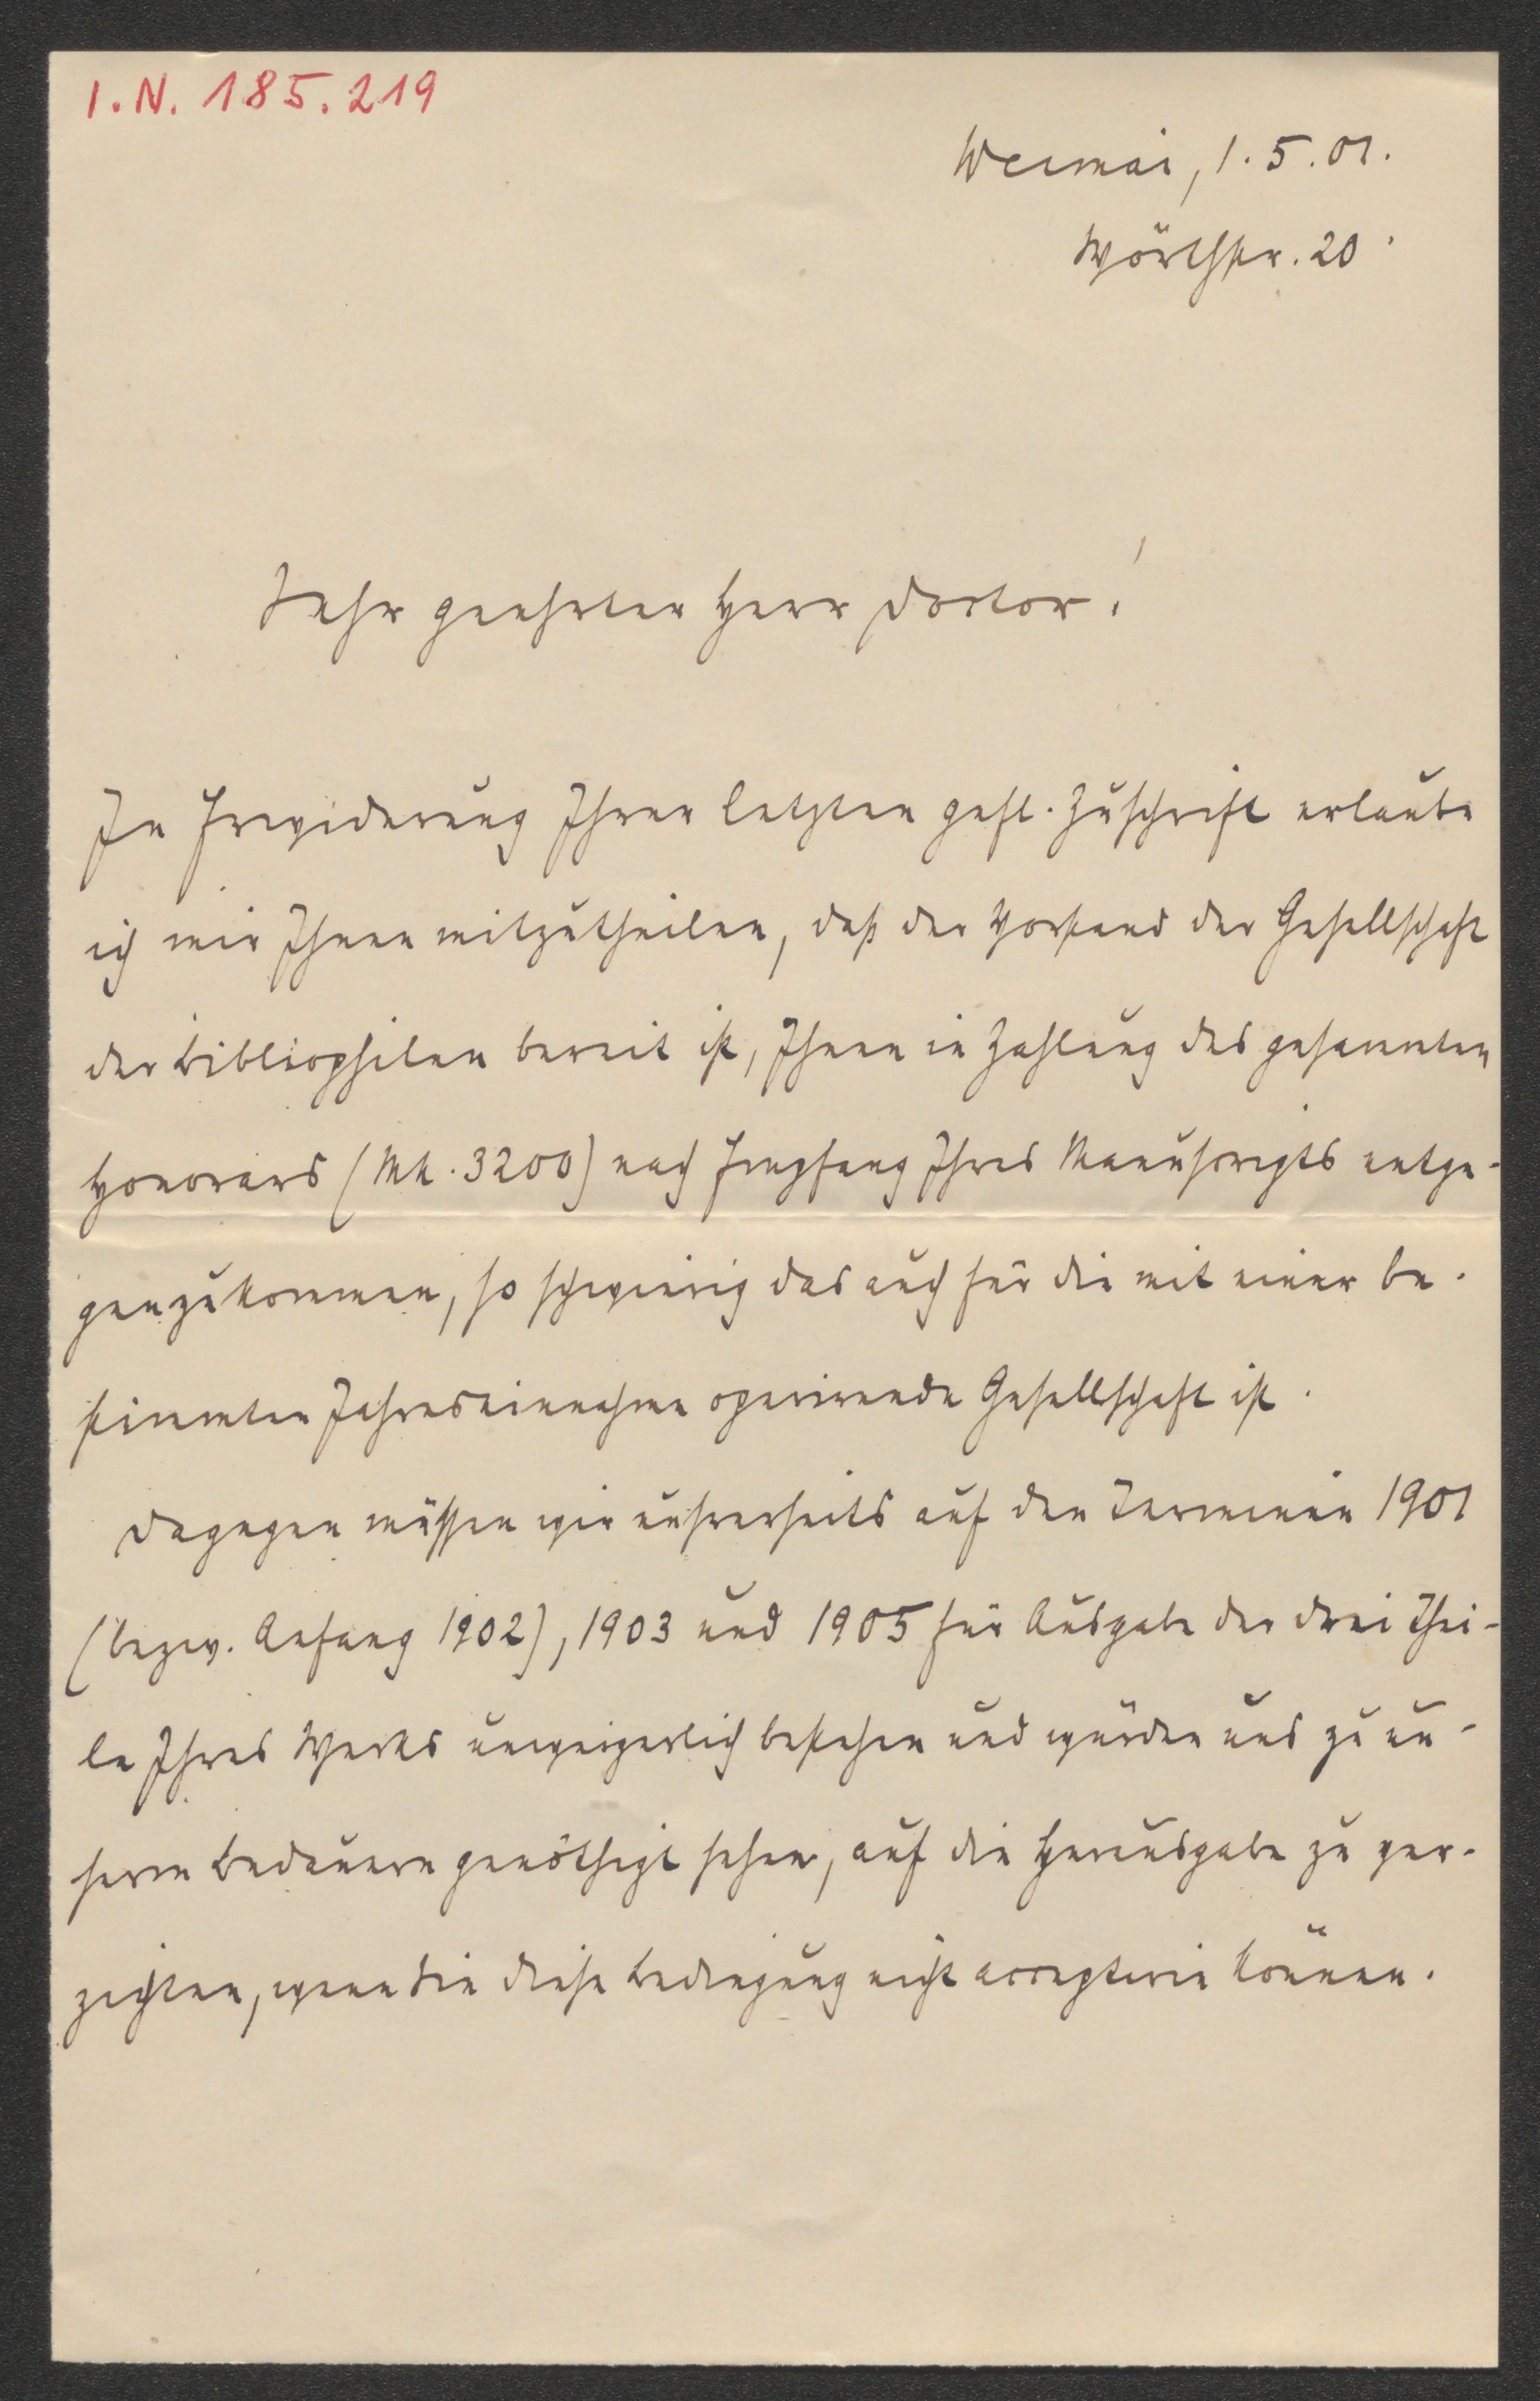 I. N. 185.219
Weimar, 1. 5. 01.
Wörthstr. 20.
Sehr geehrter Herr Doctor!
In Erwiderung Ihrer letzten gefl. Zuschrift erlaube
ich mir Ihnen mitzutheilen, daß der Vorstand der Gesellschaft
der Bibliophilen bereit ist, Ihnen in Zahlung des gesammten
Honorars (Mk. 3200) nach Empfang Ihres Manuscripts entge-
genzukommen, so schwierig das auch für die mit einer be-
stimmten Jahreseinnahme operirende Gesellschaft ist.
Dagegen müssen wir unsrerseits auf den Terminen 1901
(bezw. Anfang 1902), 1903 und 1905 für Ausgabe der drei Thei-
le Ihres Werks unweigerlich bestehen und würden uns zu un-
serm Bedauern genöthigt sehen, auf die Herausgabe zu ver-
zichten, wenn Sie diese Bedingung nicht acceptiren können.